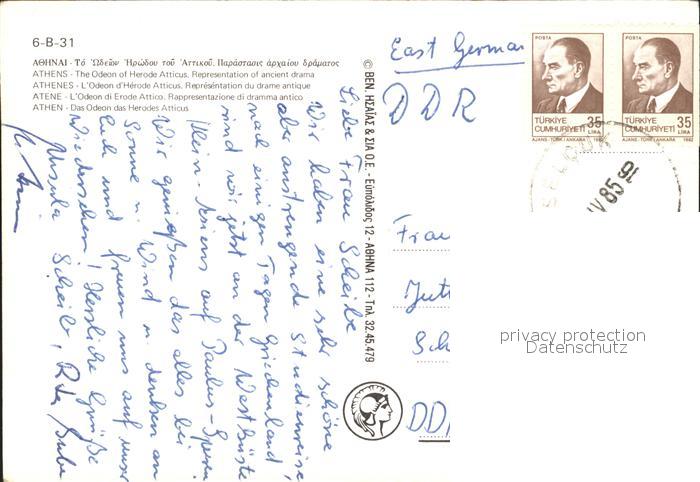 6-B-31
ΑΘΗΝΑΙ - Τό Ὠδεῖον Ἡρώδου τοῦ Ἀττικοῦ. Παράστασις ἀρχαίου δράματος
ATHENS - The Odeon of Herode Atticus. Representation of ancient drama
ATHENES - L'Odeon d'Hérode Atticus. Représentation du drame antique
ATENE - L'Odeon di Erodo Attico. Rappresentazione di dramma antico
ATHEN - Das Odeon das Herodes Atticus
Liebe Frau Scheibe
Wir haben eine sehr schöne
aber anstrengende Studienreise,
nach einigen Tagen Griechenland
sind wir jetzt an der Westküste
Klein-Asiens auf Paulus-Spuren.
Wir genießen das alles bei
Sonne u. Wind u. denken an
Euch und freuen uns auf unser
Wiedersehen! Herzliche Grüße
Ursula
© ΒΕΝ. ΗΣΑΪΑΣ & ΣΙΑ Ο.Ε. - Εὐπόλιδος 12 - ΑΘΗΝΑ 112 - Τηλ. 32.45.479
East German
DDR
POSTA
TÜRKİYE
CUMHURİYETİ
35
LİRA
AJANS-TÜRK/ANKARA 1982
POSTA
TÜRKİYE
CUMHURİYETİ
35
LİRA
AJANS-TÜRK/ANKARA 1982
SELÇUK
IV 85
Frau
Jutt
Sch
DD
privacy protection
Datenschutz